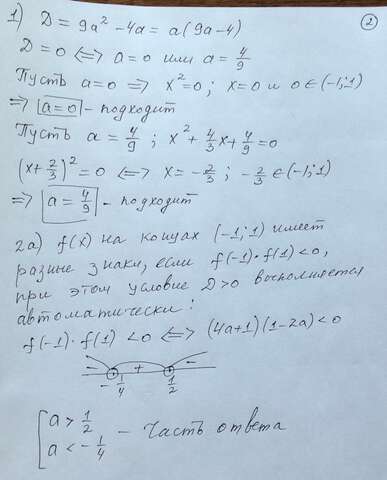 1) D = 9a² - 4a = a(9a-4)
2
D = 0 <=> a = 0 или a = 4/9
Пусть a = 0 => x² = 0; x = 0 и 0 ∈ (-1;1)
=> a = 0 - подходит
Пусть a = 4/9; x² + 4/3x + 4/9 = 0
(x + 2/3)² = 0 <=> x = -2/3; -2/3 ∈ (-1;1)
=> a = 4/9 - подходит
2a) f(x) на концах (-1;1) имеет
разные знаки, если f(-1)·f(1) < 0,
при этом условие D > 0 выполняется
автоматически:
f(-1)·f(1) < 0 <=> (4a+1)(1-2a) < 0
- + -
-1/4 1/2
[ a > 1/2
a < -1/4 - Часть ответа